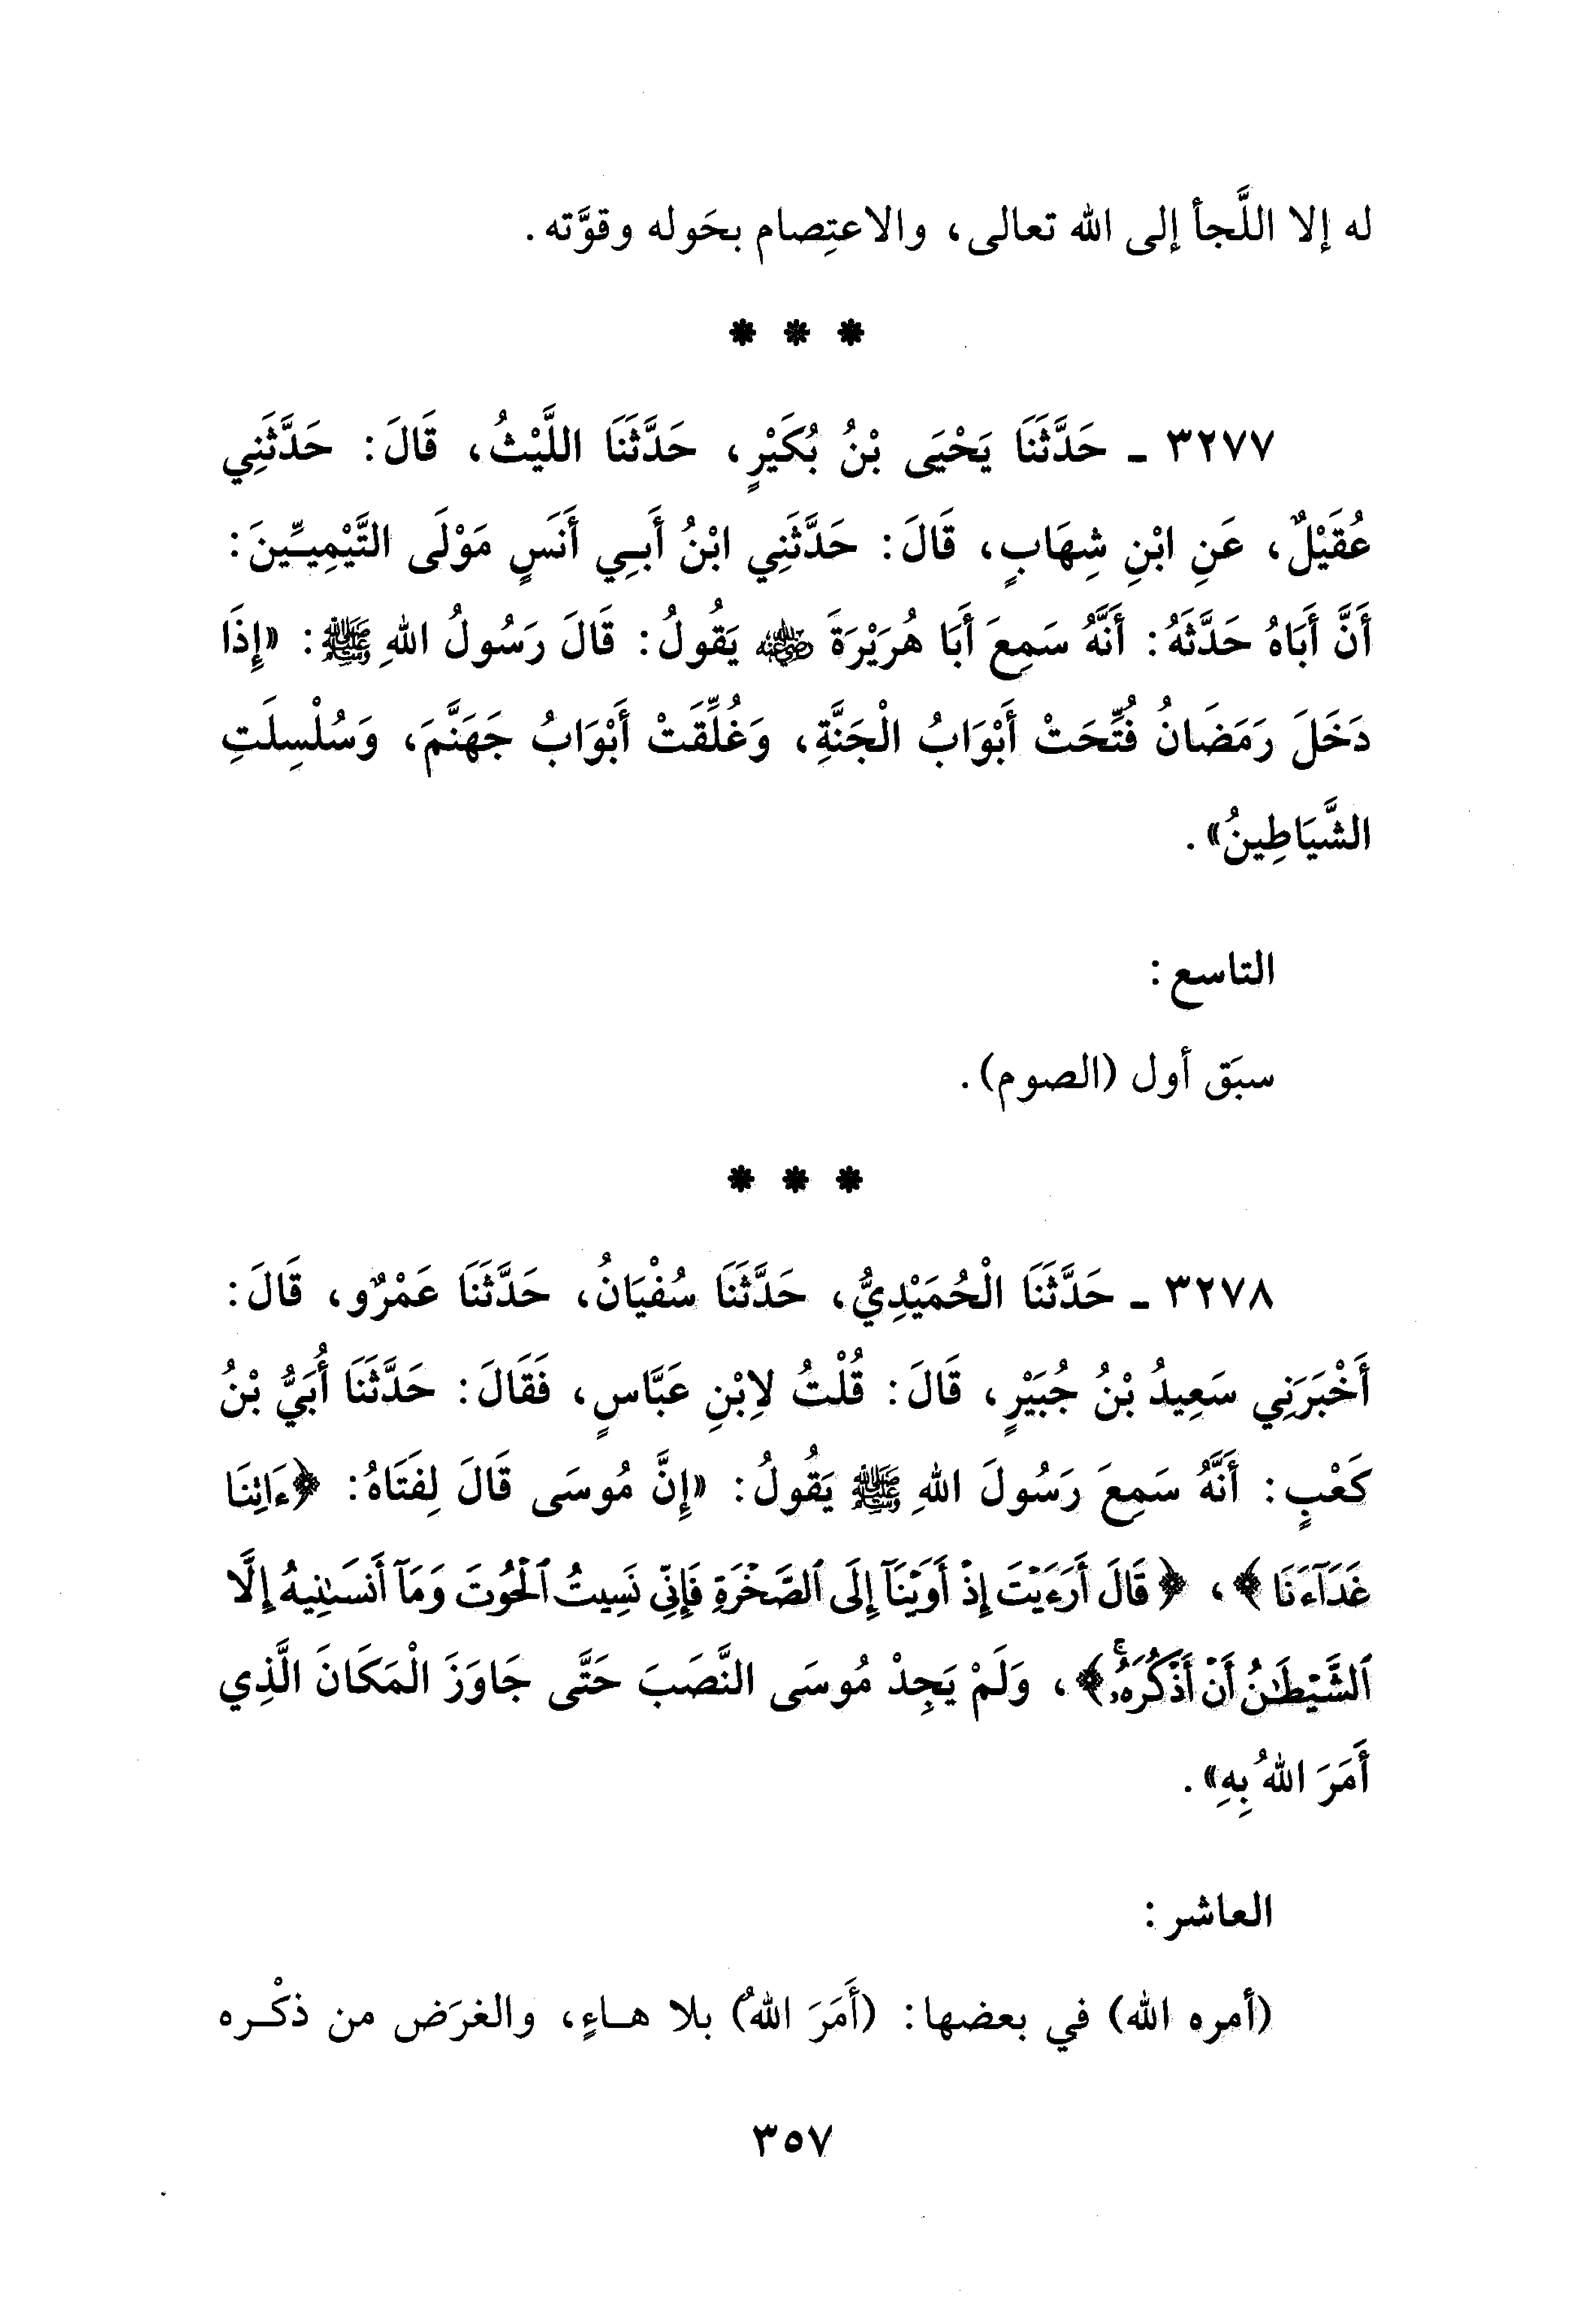 له إلا اللَّجأ إلى الله تعالى، والاعتِصام بحَوله وقوَّته.
* * *
٣٢٧٧ ـ حَدَّثَنَا يَحْيَى بْنُ بُكَيْرٍ، حَدَّثَنَا اللَّيْثُ، قَالَ: حَدَّثَنِي
عُقَيْلٌ، عَنِ ابْنِ شِهَابٍ، قَالَ: حَدَّثَنِي ابْنُ أَبِي أَنَسٍ مَوْلَى التَّيْمِيِّينَ:
أَنَّ أَبَاهُ حَدَّثَهُ: أَنَّهُ سَمِعَ أَبَا هُرَيْرَةَ رضي الله عنه يَقُولُ: قَالَ رَسُولُ اللهِ ﷺ: «إِذَا
دَخَلَ رَمَضَانُ فُتِّحَتْ أَبْوَابُ الْجَنَّةِ، وَغُلِّقَتْ أَبْوَابُ جَهَنَّمَ، وَسُلْسِلَتِ
الشَّيَاطِينُ».
التاسع:
سبَق أول (الصوم).
* * *
٣٢٧٨ ـ حَدَّثَنَا الْحُمَيْدِيُّ، حَدَّثَنَا سُفْيَانُ، حَدَّثَنَا عَمْرٌو، قَالَ:
أَخْبَرَنِي سَعِيدُ بْنُ جُبَيْرٍ، قَالَ: قُلْتُ لاِبْنِ عَبَّاسٍ، فَقَالَ: حَدَّثَنَا أُبَيُّ بْنُ
كَعْبٍ: أَنَّهُ سَمِعَ رَسُولَ اللهِ ﷺ يَقُولُ: «إِنَّ مُوسَى قَالَ لِفَتَاهُ: ﴿ءَاتِنَا
غَدَآءَنَا﴾، ﴿قَالَ أَرَءَيْتَ إِذْ أَوَيْنَآ إِلَى ٱلصَّخْرَةِ فَإِنِّي نَسِيتُ ٱلْحُوتَ وَمَآ أَنسَىٰنِيهُ إِلَّا
ٱلشَّيْطَٰنُ أَنْ أَذْكُرَهُۥۚ﴾، وَلَمْ يَجِدْ مُوسَى النَّصَبَ حَتَّى جَاوَزَ الْمَكَانَ الَّذِي
أَمَرَ اللهُ بِهِ».
العاشر:
(أمره الله) في بعضها: (أَمَرَ اللهُ) بلا هـاءٍ، والغرَض من ذكْـره
٣٥٧